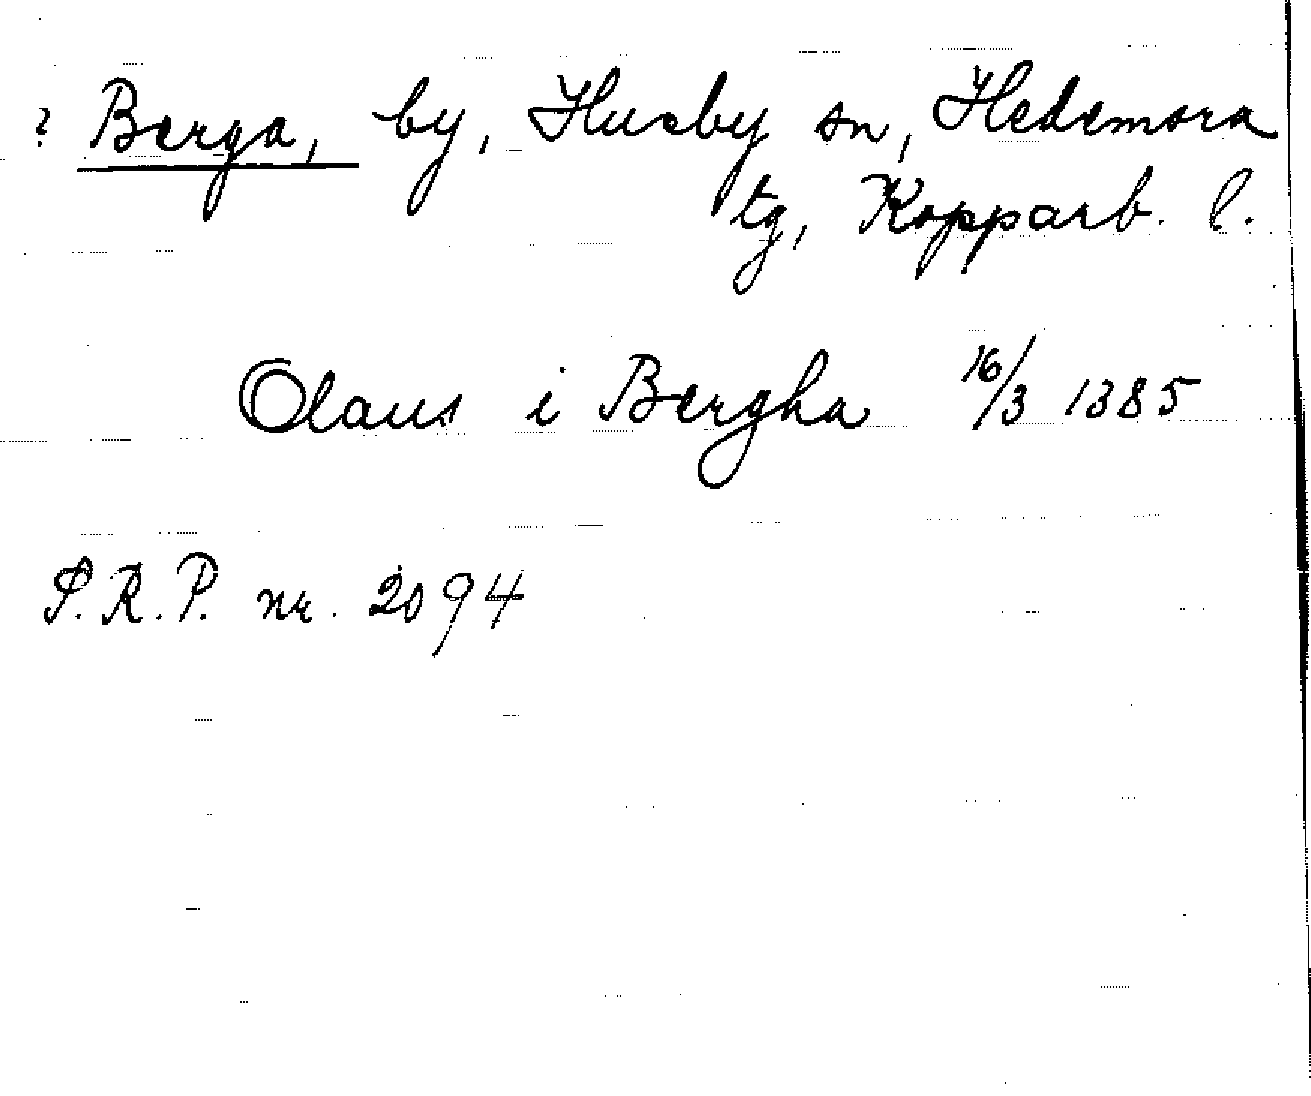 ? Berga, by, Husby sn, Hedemora
tg, Kopparb. l.
Olaus i Bergha 16/3 1385
S.R.P. nr. 2094